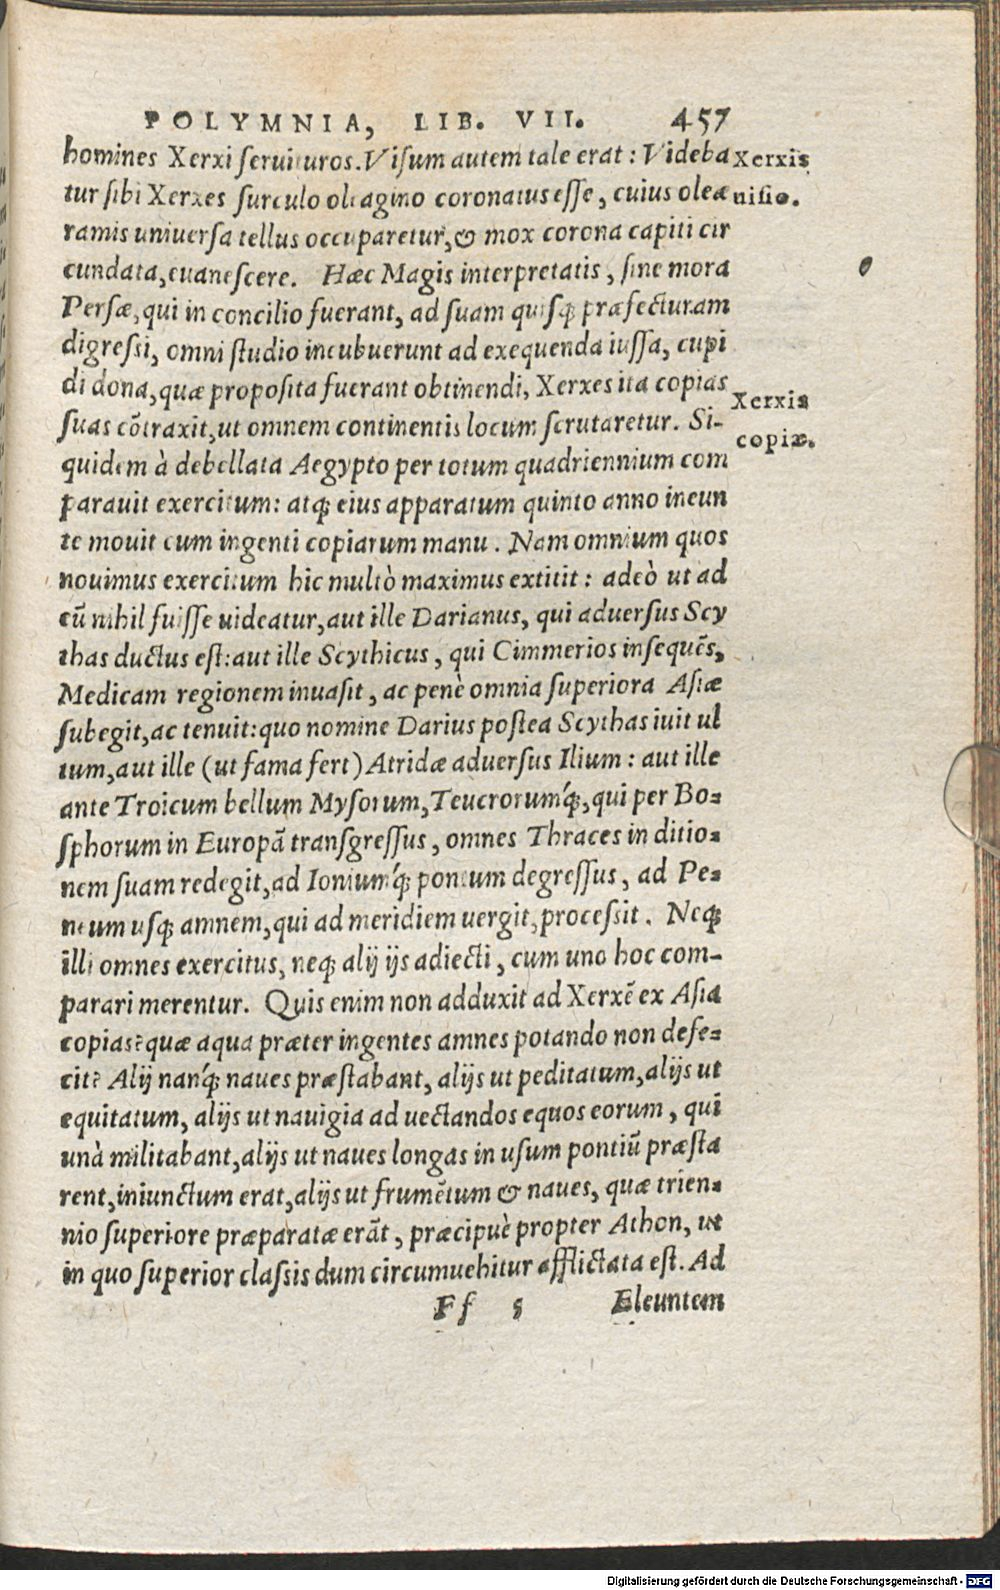 POLYMNIA, LIB. VII. 457
homines Xerxi seruituros. Visum autem tale erat: Videba
Xerxis
tur sibi Xerxes surculo oleagino coronatus esse, cuius oleæ
uisio.
ramis uniuersa tellus occuparetur, & mox corona capiti cir
cundata, euanescere. Hæc Magis interpretatis, sine mora
Persæ, qui in concilio fuerant, ad suam quisq; præfecturam
digressi, omni studio incubuerunt ad exequenda iussa, cupi
di dona, quæ proposita fuerant obtinendi, Xerxes ita copias
Xerxis
suas cõtraxit, ut omnem continentis locum scrutaretur. Si-
copiæ.
quidem à debellata Aegypto per totum quadriennium com
parauit exercitum: atq; eius apparatum quinto anno ineun
te mouit cum ingenti copiarum manu. Nam omnium quos
nouimus exercitum hic multò maximus extitit: adeò ut ad
eũ nihil fuisse uideatur, aut ille Darianus, qui aduersus Scy
thas ductus est: aut ille Scythicus, qui Cimmerios insequẽs,
Medicam regionem inuasit, ac penè omnia superiora Asiæ
subegit, ac tenuit: quo nomine Darius postea Scythas iuit ul
tum, aut ille (ut fama fert) Atridæ aduersus Ilium: aut ille
ante Troicum bellum Mysorum, Teucrorumq́;, qui per Bo-
sphorum in Europã transgressus, omnes Thraces in ditio-
nem suam redegit, ad Ioniumq́; pontum degressus, ad Pe-
neum usq; amnem, qui ad meridiem uergit, processit. Neq;
illi omnes exercitus, neq; alij ijs adiecti, cum uno hoc com-
parari merentur. Quis enim non adduxit ad Xerxẽ ex Asia
copias? quæ aqua præter ingentes amnes potando non defe-
cit? Alij nanq́; naues præstabant, alijs ut peditatum, alijs ut
equitatum, alijs ut nauigia ad uectandos equos eorum, qui
unà militabant, alijs ut naues longas in usum pontiũ præsta
rent, iniunctum erat, alijs ut frumẽtum & naues, quæ trien-
nio superiore præparatæ erãt, præcipuè propter Athon, ut
in quo superior classis dum circumuehitur afflictata est. Ad
Ff 5 Eleuntem
Digitalisierung gefördert durch die Deutsche Forschungsgemeinschaft - DFG